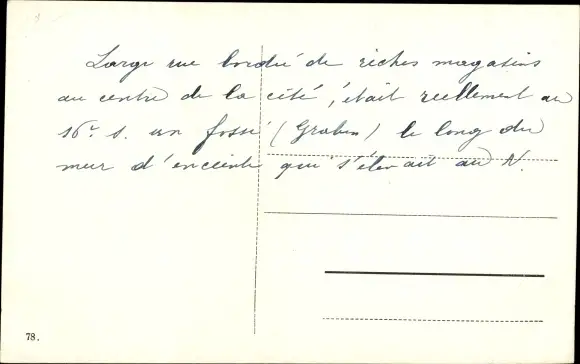 Large rue bordé de riches magasins
au centre de la cité, était réellement au
16e s. un fossé (Graben) le long du
mur d'enceinte qui s'élevait au N.
78.